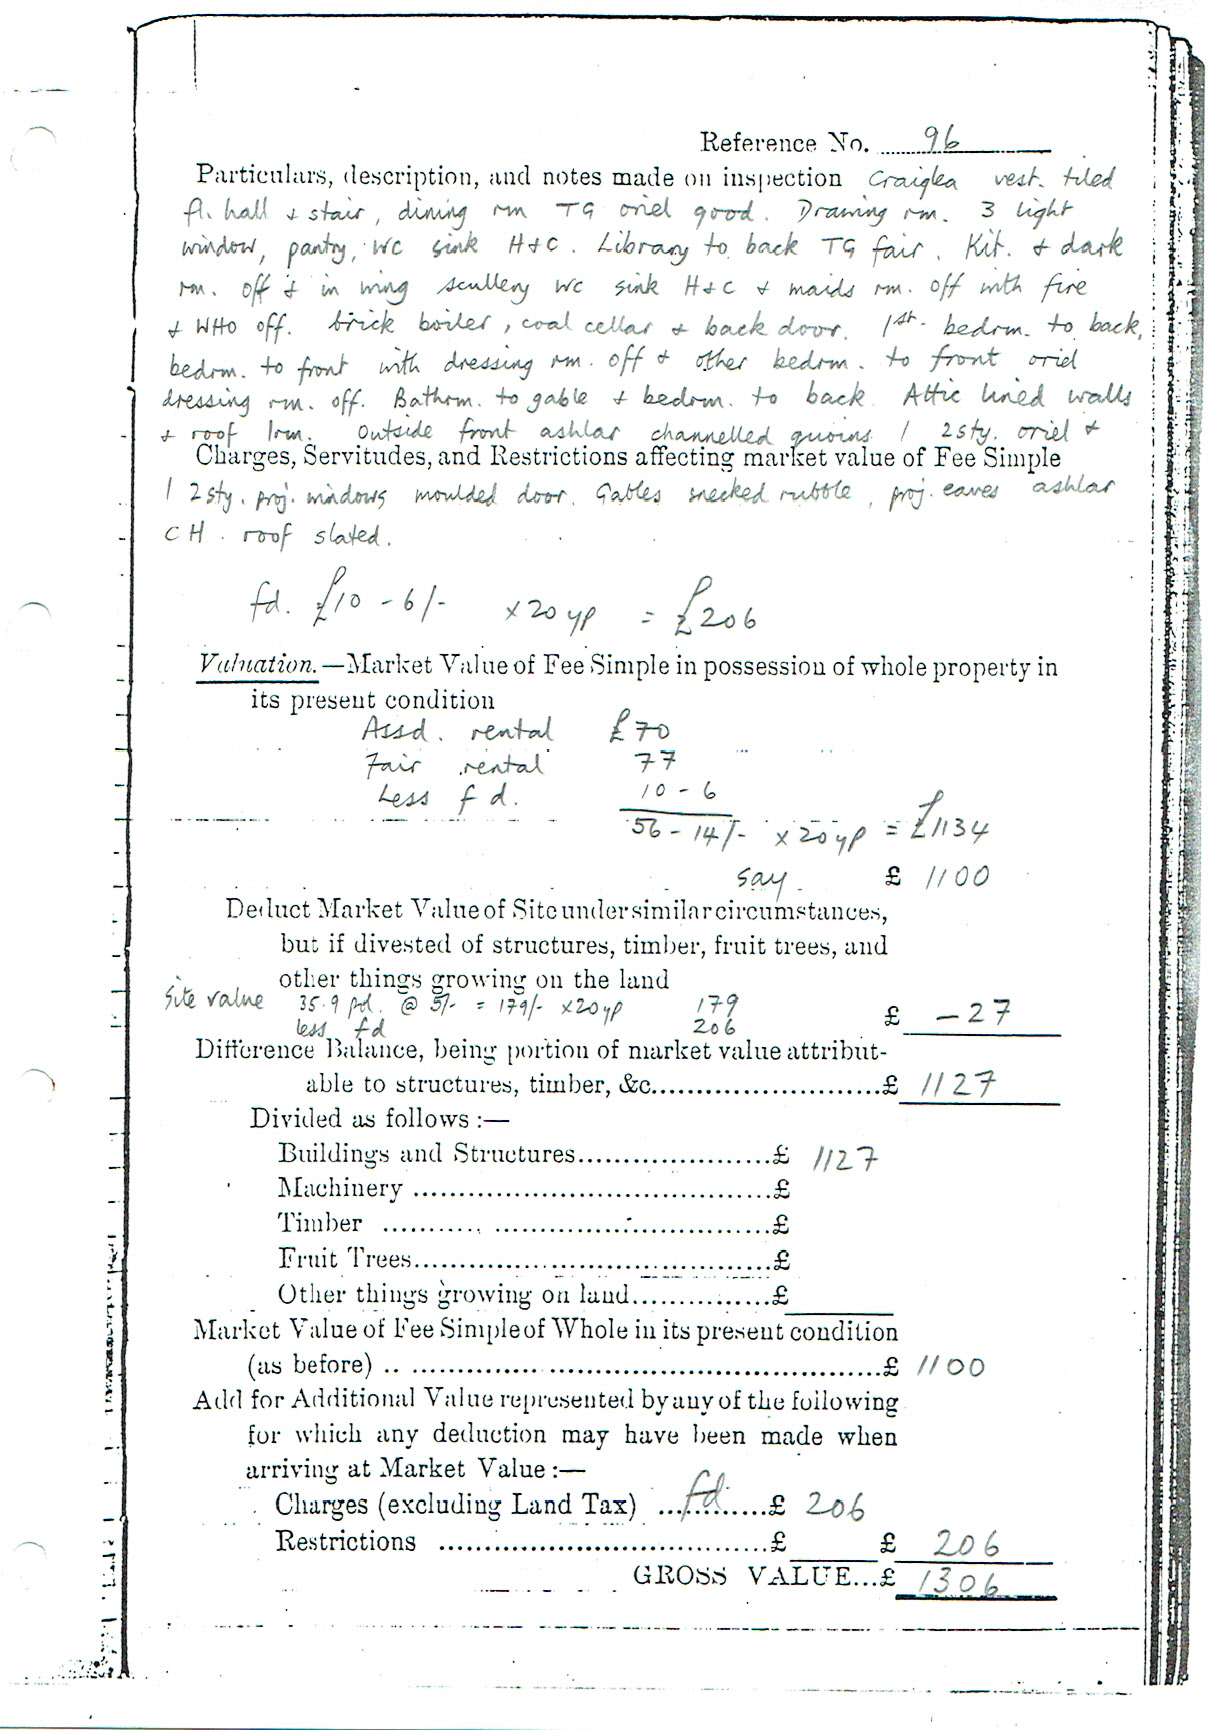 Reference No. 96
Particulars, description, and notes made on inspection Craiglea vest. tiled
fl. hall & stair, dining rm TG oriel good. Drawing rm. 3 light
window, pantry, WC sink H+C. Library to back TG fair. Kit. & dark
rm. off & in wing scullery WC sink H+C & maids rm. off with fire
& WHO off. brick boiler, coal cellar & back door. 1st. bedrm. to back,
bedrm. to front with dressing rm. off & other bedrm. to front oriel
dressing rm. off. Bathrm. to gable & bedrm. to back. Attic lined walls
& roof 1rm. Outside front ashlar channelled quoins 1 2sty. oriel &
Charges, Servitudes, and Restrictions affecting market value of Fee Simple
1 2sty. proj. windows moulded door. Gables snecked rubble, proj. eaves ashlar
CH. roof slated.
fd. £10 - 6/- x 20 yp = £206
Valuation.—Market Value of Fee Simple in possession of whole property in
its present condition
Assd. rental £70
Fair rental 77
Less fd. 10 - 6
56 - 14/- x 20 yp = £1134
say. £ 1100
Deduct Market Value of Site under similar circumstances,
but if divested of structures, timber, fruit trees, and
other things growing on the land
Site value 35.9 pol. @ 5/- = 179/- x 20yp 179 £ -27
less fd 206
Difference Balance, being portion of market value attribut-
able to structures, timber, &c.....................£ 1127
Divided as follows :—
Buildings and Structures.....................£ 1127
Machinery .....................£
Timber .....................£
Fruit Trees.....................£
Other things growing on land...............£
Market Value of Fee Simple of Whole in its present condition
(as before) .....................£ 1100
Add for Additional Value represented by any of the following
for which any deduction may have been made when
arriving at Market Value :—
Charges (excluding Land Tax) ...fd......£ 206
Restrictions .....................£ £ 206
GROSS VALUE...£ 1306